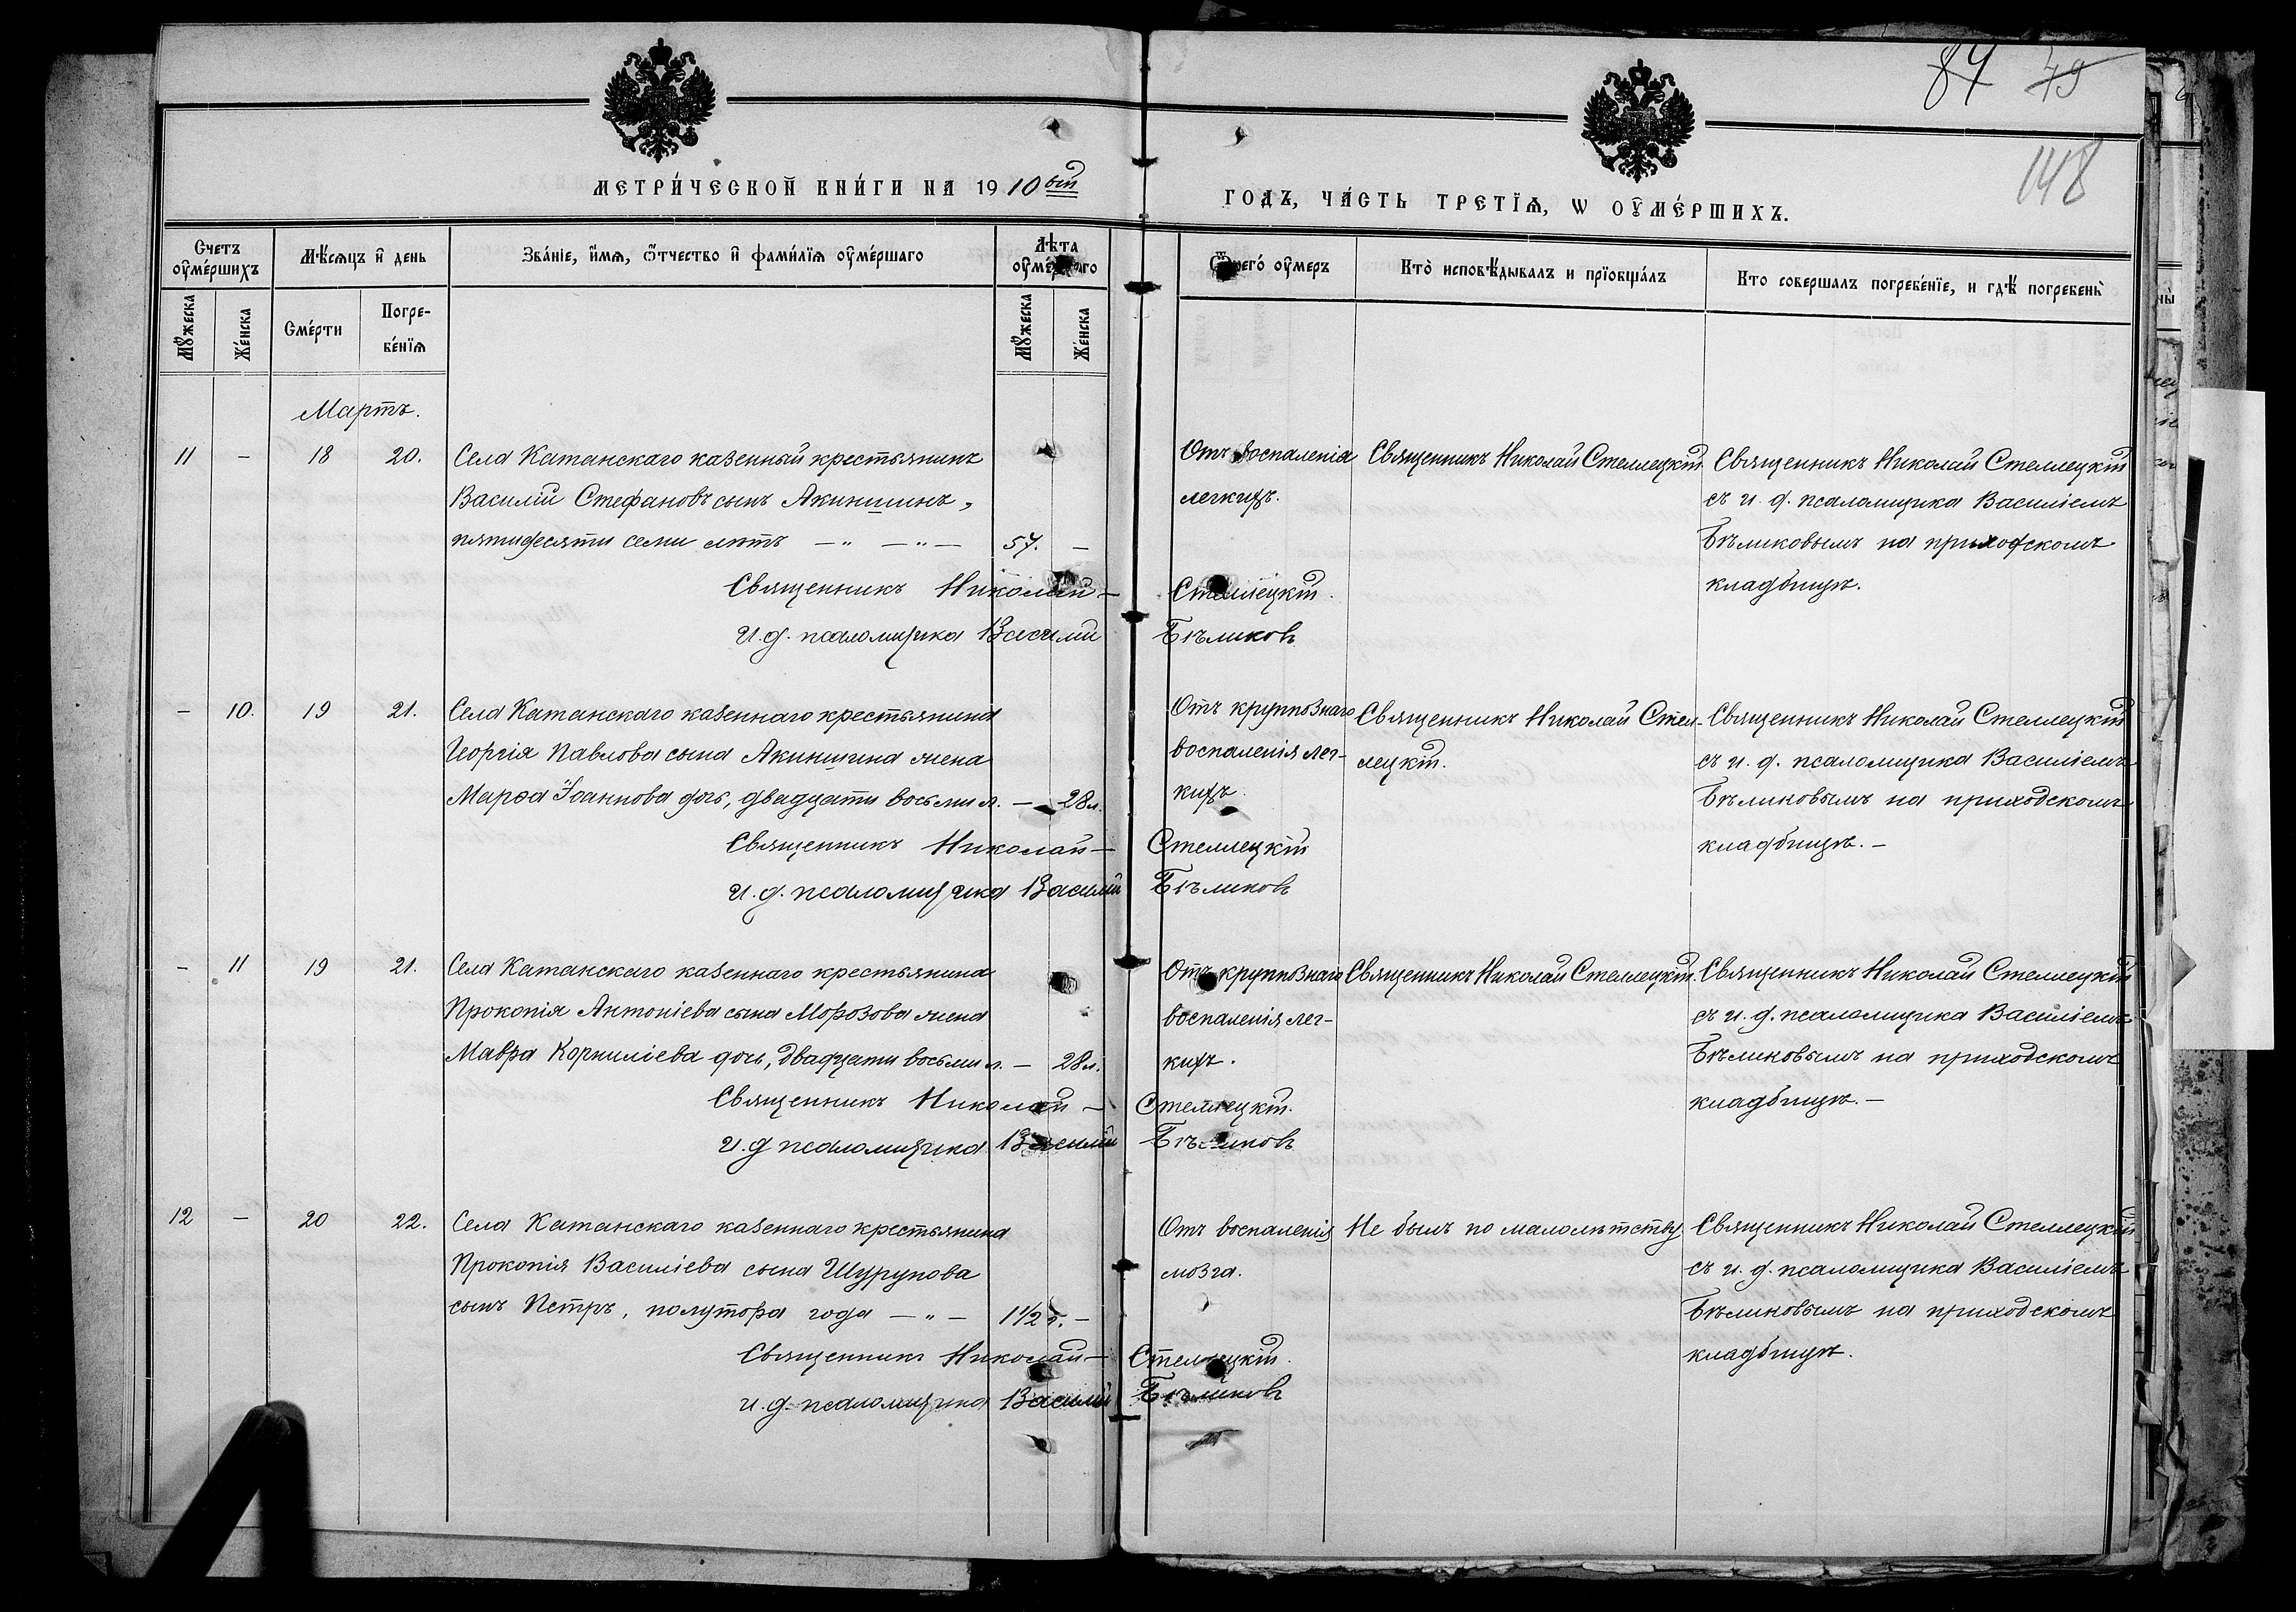 84 49
148
МЕТРИ́ЧЕСКОЙ КНИ́ГИ НА 1910ый
ГОДЪ, ЧА́СТЬ ТРЕТІѦ, Ѡ ОУ҆МЕ́РШИХЪ.
Счетъ оу҆ме́ршихъ
Мѣ́сѧцъ и҆ день
Зва́ніе, и҆́мѧ, ѻ҆́тчество и҆ фами́лїѧ оу҆ме́ршаго
Лѣта оу҆ме́ршаго
Ѿ чего́ оу҆меръ
Кто̀ исповѣ́дывалъ и прїобща́лъ
Кто совершалъ погребе́нїе, и гдѣ̀ погребены̀
Мꙋ́жеска
Же́нска
Сме́рти
Погребе́нїѧ
Мꙋ́жеска
Же́нска
Мартъ.
11 – 18 20.
Села Катанскаго казенный крестьянинъ
Василій Стефановъ сынъ Акиншинъ,
пятидесяти семи лѣтъ — „ — „ — 57. –
Священникъ Николай – Стеллецкій.
И. д. псаломщика Василій Бѣликовъ
Отъ воспаленія
легкихъ.
Священникъ Николай Стеллецкій
Священникъ Николай Стеллецкій
съ и. д. псаломщика Василіемъ
Бѣликовымъ на приходскомъ
кладбищѣ.
– 10. 19 21.
Села Катанскаго казеннаго крестьянина
Георгія Павлова сына Акиншина жена
Марѳа Іоаннова дочь, двадцати восьми л. – 28 л.
Священникъ Николай – Стеллецкій
И. д. псаломщика Василій Бѣликовъ
Отъ крупознаго
воспаленія лег-
кихъ.
Священникъ Николай Стел-
лецкій.
Священникъ Николай Стеллецкій
съ и. д. псаломщика Василіемъ
Бѣликовымъ на приходскомъ
кладбищѣ. –
– 11 19 21.
Села Катанскаго казеннаго крестьянина
Прокопія Антоніева сына Морозова жена
Мавра Корниліева дочь, двадцати восьми л. – 28 л.
Священникъ Николай – Стеллецкій.
И. д псаломщика Василій Бѣликовъ
Отъ крупознаго
воспаленія лег-
кихъ.
Священникъ Николай Стеллецкій.
Священникъ Николай Стеллецкій
съ и. д. псаломщика Василіемъ
Бѣликовымъ на приходскомъ
кладбищѣ. –
12 – 20 22.
Села Катанскаго казеннаго крестьянина
Прокопія Василіева сына Шурупова
сынъ Петръ, полутора года — „ — 1 1/2 г. –
Священникъ Николай – Стеллецкій.
И. д. псаломщика Василій Бѣликовъ
Отъ воспаленія
мозга.
Не былъ по малолѣтству
Священникъ Николай Стеллецкій
съ и. д. псаломщика Василіемъ
Бѣликовымъ на приходскомъ
кладбищѣ.